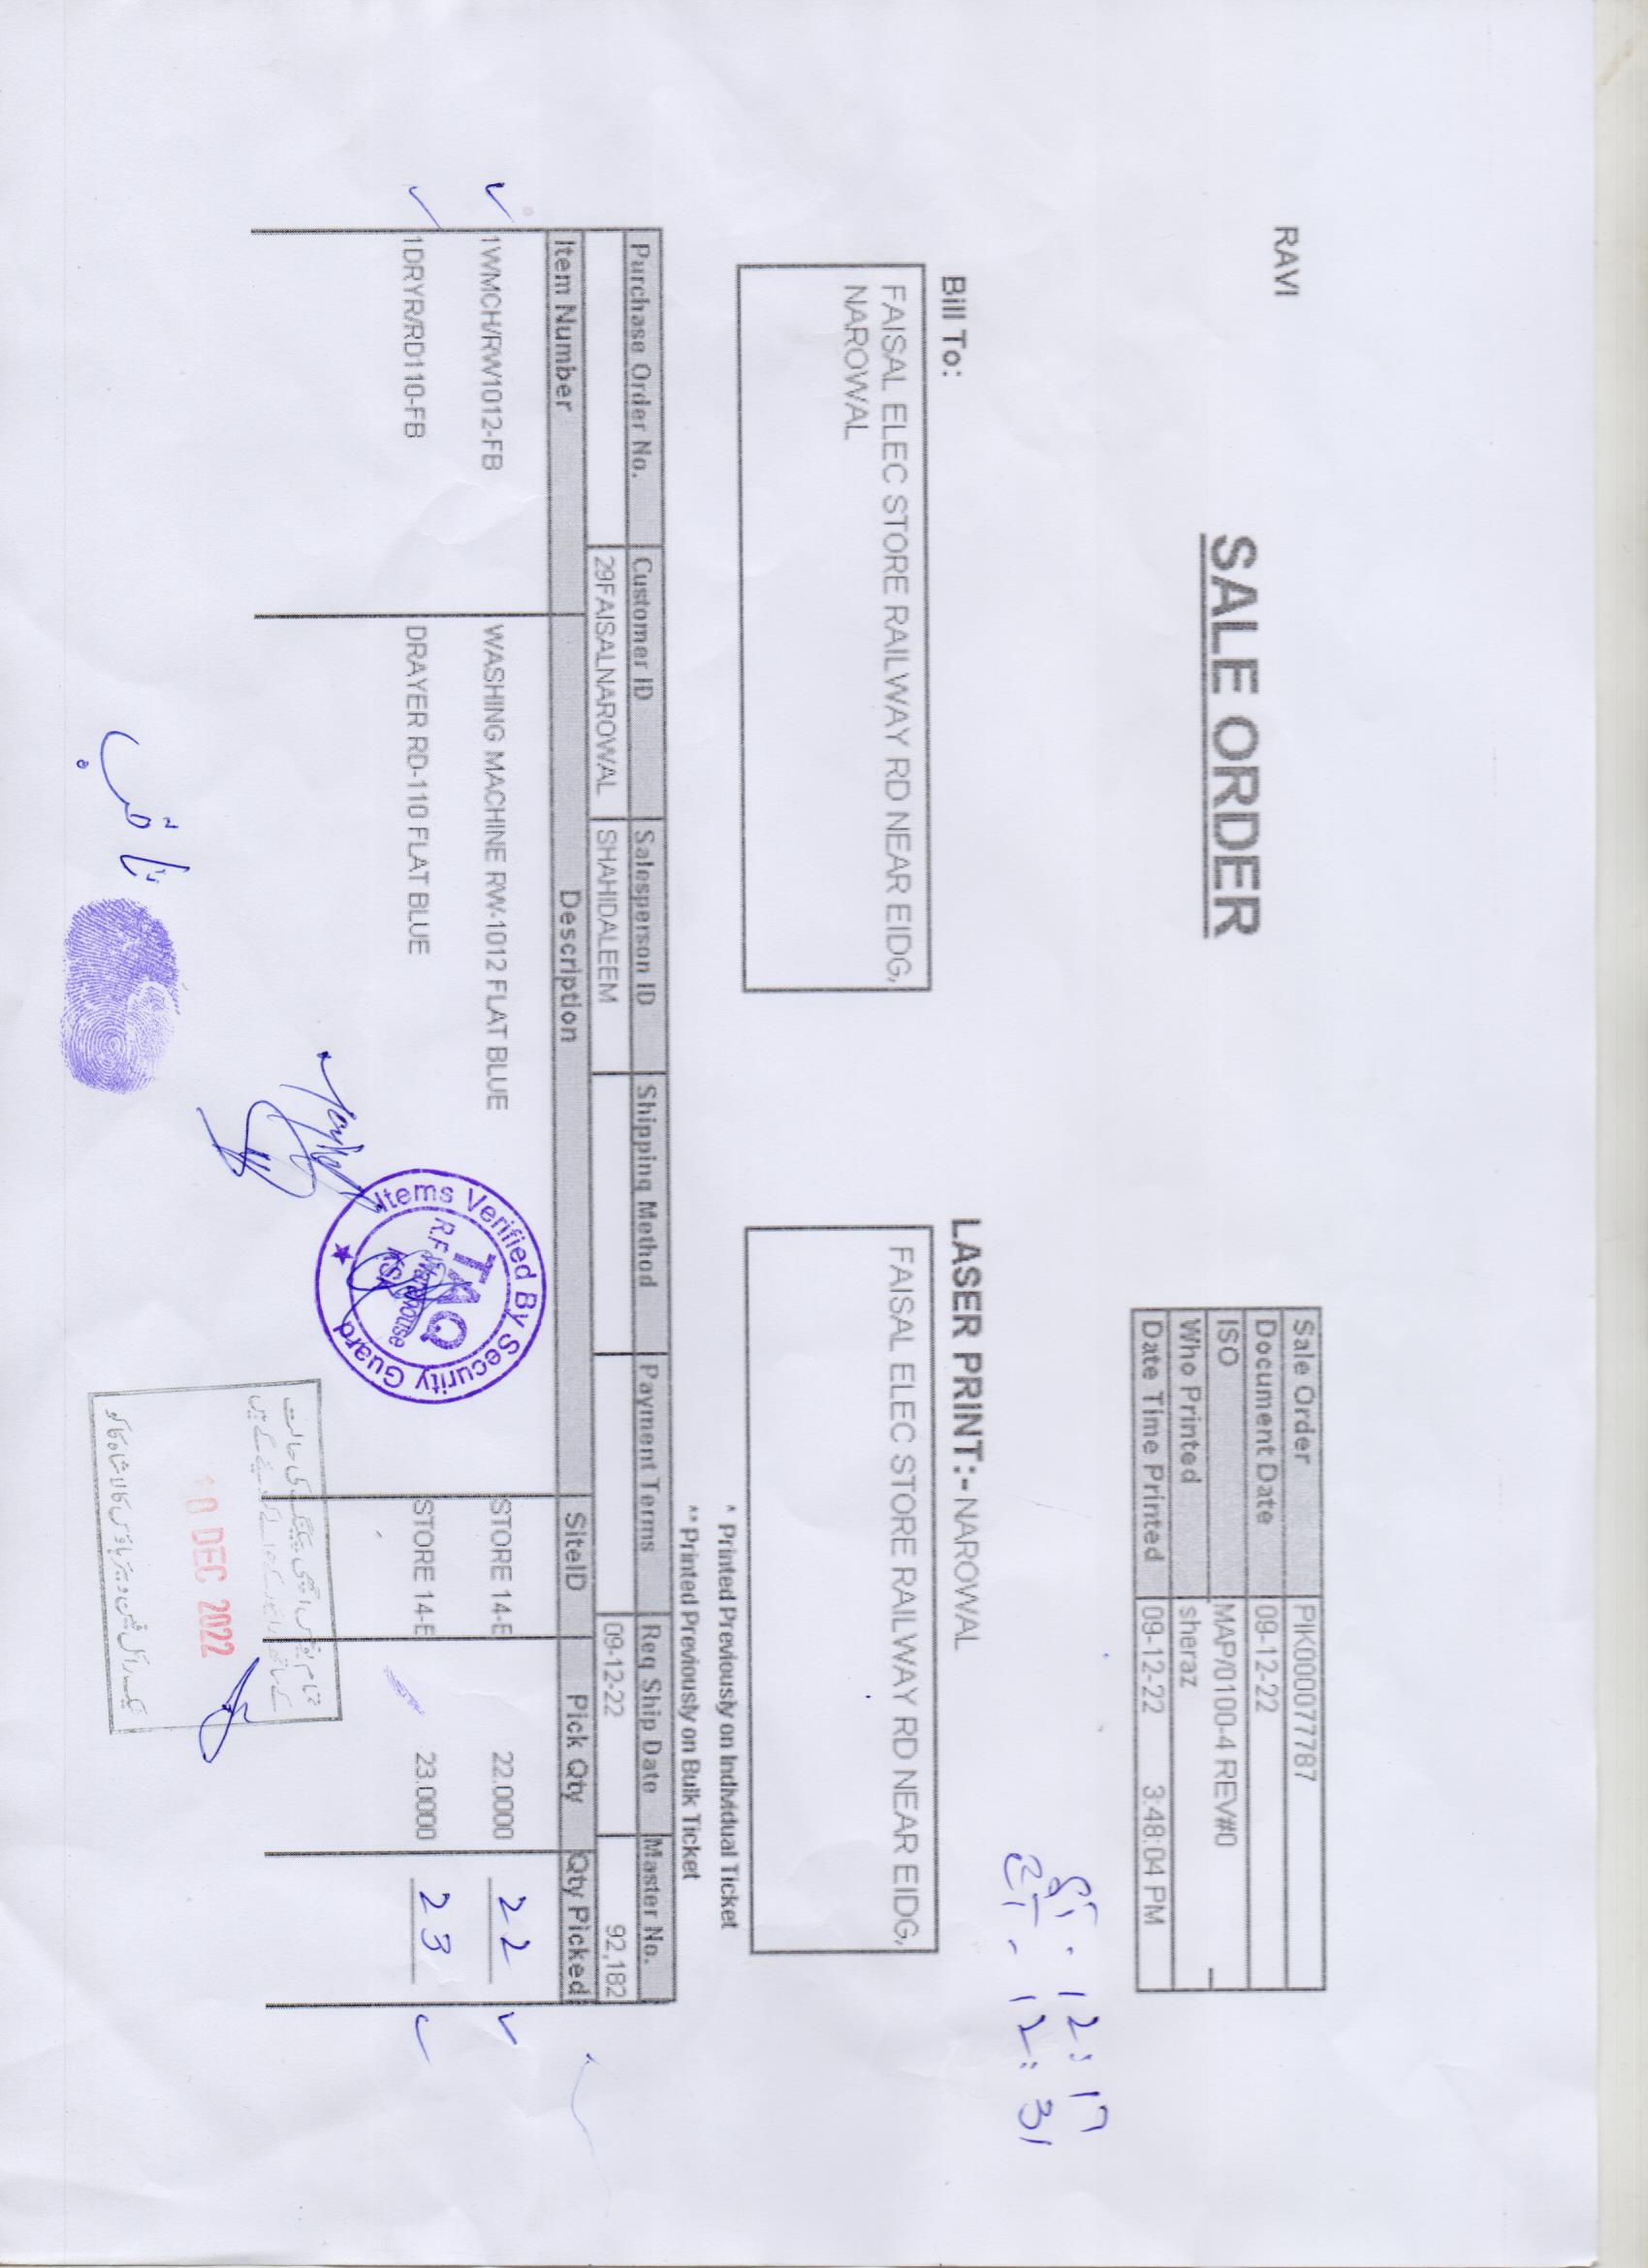 RAVI
SALE ORDER
Sale Order PIK000077787
Document Date 09-12-22
ISO MAP/0100-4 REV#0
Who Printed sheraz
Date Time Printed 09-12-22 3:48:04 PM
ST. 12:17
ET. 12:31
Bill To:
FAISAL ELEC STORE RAILWAY RD NEAR EIDG,
NAROWAL
LASER PRINT:- NAROWAL
FAISAL ELEC STORE RAILWAY RD NEAR EIDG,
* Printed Previously on Individual Ticket
** Printed Previously on Bulk Ticket
Purchase Order No. Customer ID Salesperson ID Shipping Method Payment Terms Req Ship Date Master No.
29FAISALNAROWAL SHAHIDALEEM 09-12-22 92,182
Item Number Description SiteID Pick Qty Qty Picked
1WMCH/RW1012-FB WASHING MACHINE RW-1012 FLAT BLUE STORE 14-E 22.0000 22
1DRYR/RD110-FB DRAYER RD-110 FLAT BLUE STORE 14-E 23.0000 23
Items Verified By Security Guard
TAQ
R.F. Warehouse
KSK
تمام یونٹس اچھی پیکنگ کی حالت
کے ساتھ ڈرائیور کے حوالے کر دیئے گے ہیں
10 DEC 2022
ٹیک رائل فین ویئر ہاؤس کالا شاہ کاکو
ثاقب